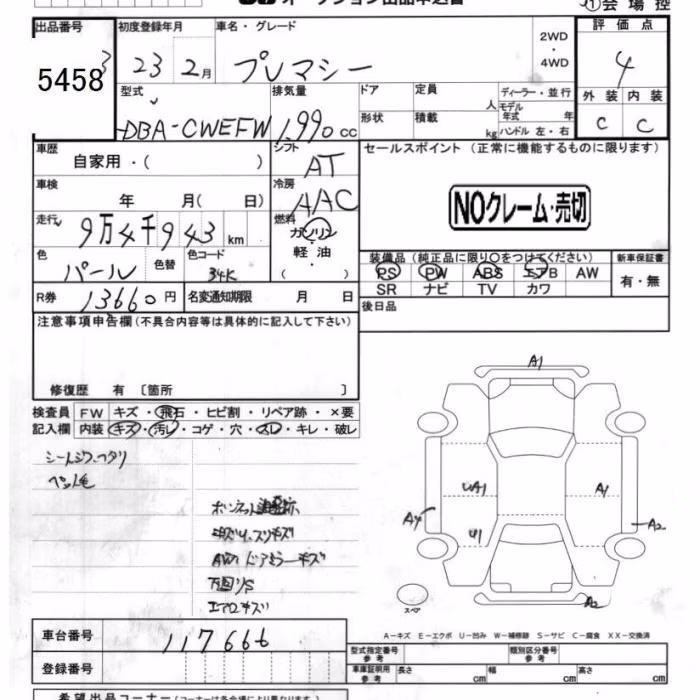 オークション出品申込書
①会場控
出品番号 初度登録年月 車名・グレード 2WD・4WD 評価点
5458 3 23 2月 プレマシー 4
型式 排気量 ドア 定員 人 ディーラー・並行 外装 内装
DBA-CWEFW 1,990cc 形状 積載 kg モデル年式 年 ハンドル 左・右 C C
車歴 自家用・( ) シフト AT セールスポイント (正常に機能するものに限ります)
車検 年 月( 日) 冷房 AAC
NOクレーム・売切
走行 9万4千943km 燃料 ガソリン・軽油・( )
色 パール 色替 色コード 34K
装備品 (純正品に限り○をつけてください) 新車保証書
PS PW ABS エアB AW 有・無
SR ナビ TV カワ
R券 13660円 名変通知期限 月 日 後日品
注意事項申告欄(不具合内容等は具体的に記入して下さい)
修復歴 有 〔箇所 〕
検査員 FW キズ・飛石・ヒビ割・リペア跡・×要
記入欄 内装 キズ・汚レ・コゲ・穴・スレ・キレ・破レ
シートシワ・ヘタリ
ペット毛
AW1 ドアミラーキズ
エアロキズ
A1
UA1 A1
A4 U1 A2
スペア A2
A-キズ E-エクボ U-凹み W-補修跡 S-サビ C-腐食 XX-交換済
車台番号 117666
型式指定番号 参考 類別区分番号 参考
登録番号
車庫証明用 参考 長さ cm 幅 cm 高さ cm
希望出品コーナー(コーナーは各会場により異なります)